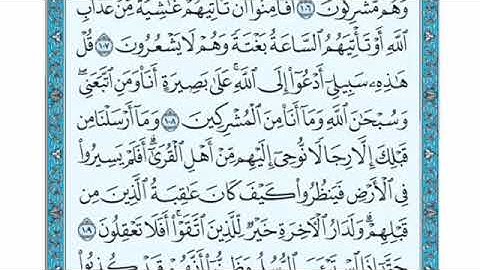 وَهُم مُّشْرِكُونَ ١٠٦ أَفَأَمِنُوٓا۟ أَن تَأْتِيَهُمْ غَٰشِيَةٌ مِّنْ عَذَابِ
ٱللَّهِ أَوْ تَأْتِيَهُمُ ٱلسَّاعَةُ بَغْتَةً وَهُمْ لَا يَشْعُرُونَ ١٠٧ قُلْ
هَٰذِهِۦ سَبِيلِىٓ أَدْعُوٓا۟ إِلَى ٱللَّهِ ۚ عَلَىٰ بَصِيرَةٍ أَنَا۠ وَمَنِ ٱتَّبَعَنِى ۖ
وَسُبْحَٰنَ ٱللَّهِ وَمَآ أَنَا۠ مِنَ ٱلْمُشْرِكِينَ ١٠٨ وَمَآ أَرْسَلْنَا مِن
قَبْلِكَ إِلَّا رِجَالًا نُّوحِىٓ إِلَيْهِم مِّنْ أَهْلِ ٱلْقُرَىٰٓ ۗ أَفَلَمْ يَسِيرُوا۟
فِى ٱلْأَرْضِ فَيَنظُرُوا۟ كَيْفَ كَانَ عَٰقِبَةُ ٱلَّذِينَ مِن
قَبْلِهِمْ ۗ وَلَدَارُ ٱلْءَاخِرَةِ خَيْرٌ لِّلَّذِينَ ٱتَّقَوْا۟ ۗ أَفَلَا تَعْقِلُونَ ١٠٩
حَتَّىٰٓ إِذَا ٱسْتَيْـَٔسَ ٱلرُّسُلُ وَظَنُّوٓا۟ أَنَّهُمْ قَدْ كُذِبُوا۟